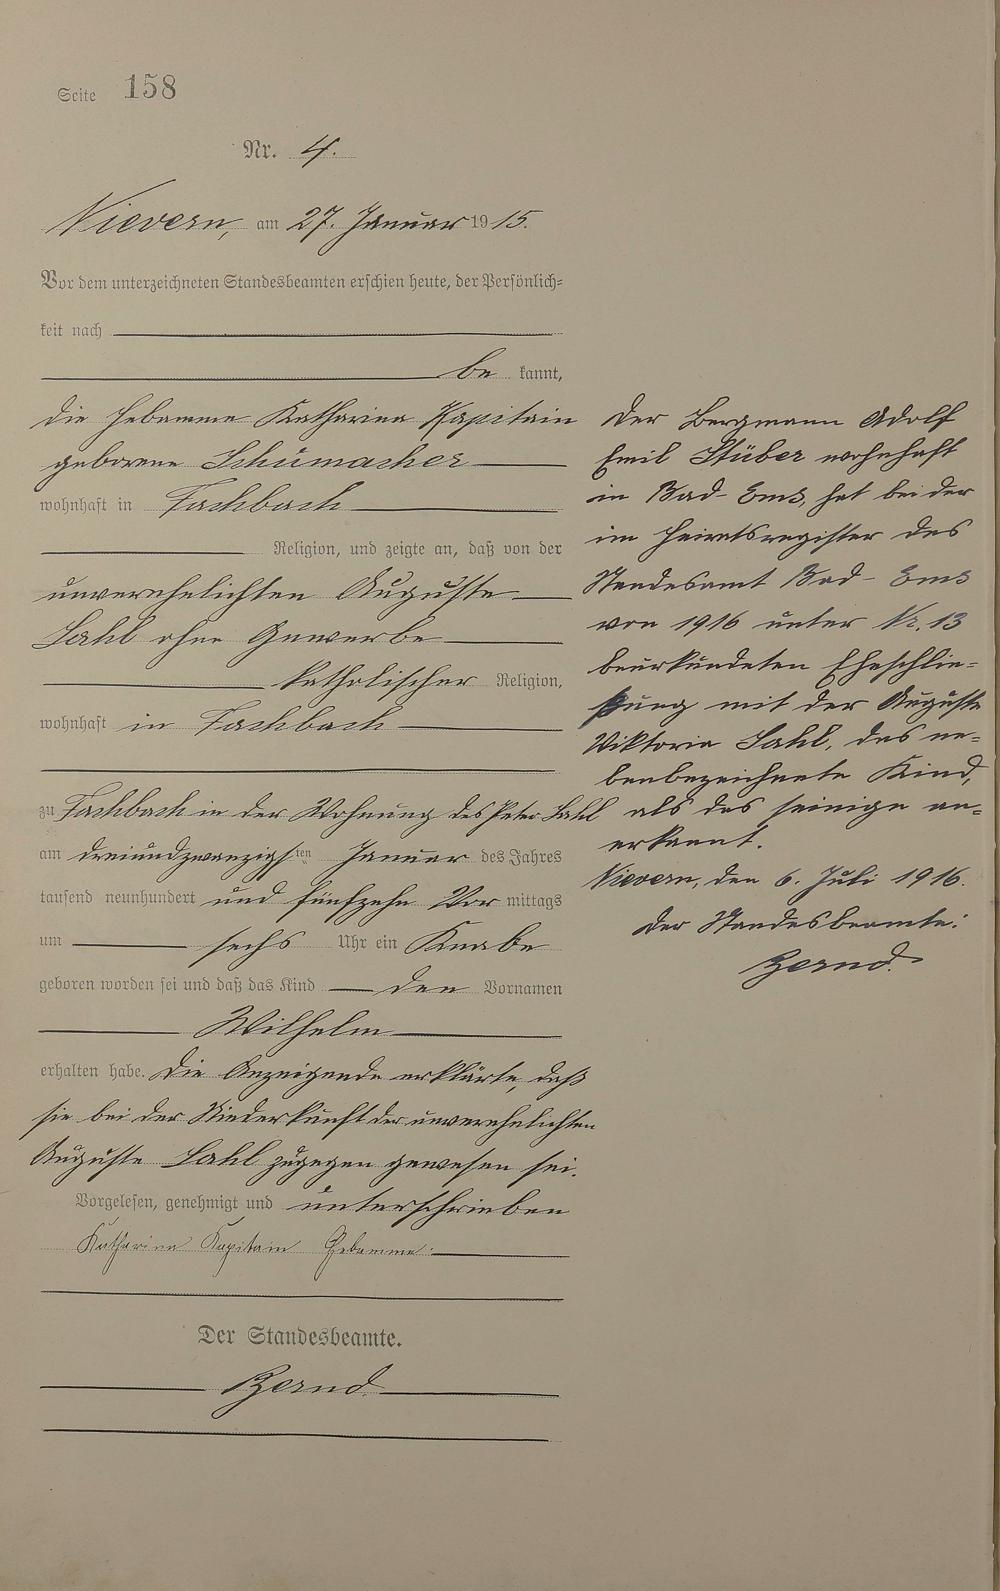 Seite 158
Nr. 4.
Nievern, am 27. Januar 1915.
Vor dem unterzeichneten Standesbeamten erschien heute, der Persönlich=
keit nach
be kannt,
die Hebamme Katharina Kapitain
geborene Schumacher
wohnhaft in Fachbach
Religion, und zeigte an, daß von der
unverehelichten Auguste
Sahl ohne Gewerbe
katholischer Religion,
wohnhaft in Fachbach
zu Fachbach in der Wohnung des Peter Sahl
am dreiundzwanzigsten Januar des Jahres
tausend neunhundert und fünfzehn Vor mittags
um sechs Uhr ein Knabe
geboren worden sei und daß das Kind den Vornamen
Wilhelm
erhalten habe. Die Anzeigende erklärte, daß
sie bei der Niederkunft der unverehelichten
Auguste Sahl zugegen gewesen sei.
Vorgelesen, genehmigt und unterschrieben
Katharina Kapitain Hebamme.
Der Standesbeamte.
Bernd
Der Bergmann Adolf
Emil Stüber wohnhaft
in Bad-Ems, hat bei der
im Heiratsregister des
Standesamt Bad-Ems
von 1916 unter Nr. 13
beurkundeten Eheschlie=
ßung mit der Auguste
Viktoria Sahl, das ne=
benbezeichnete Kind,
als das seinige an=
erkannt.
Nievern, den 6. Juli 1916.
Der Standesbeamte:
Bernd.